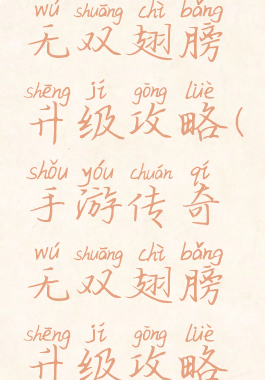 wú shuāng chì bǎng
无双翅膀
shēng jí gōng lüè
升级攻略(
shǒu yóu chuán qí
手游传奇
wú shuāng chì bǎng
无双翅膀
shēng jí gōng lüè
升级攻略